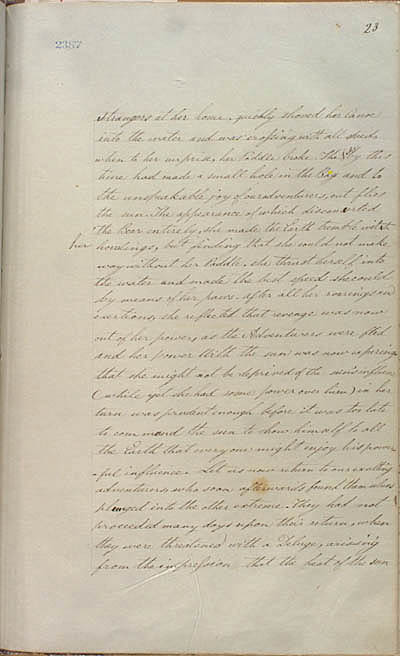 23
2387
strangers at her home, quickly shoved her canoe
into the water and was crossing with all speed,
when to her surprise, her Paddle broke. The by this
time had made a small hole in the Bag and to
the unspeakable joy of our adventurers, out flies
the sun. The appearance of which disconcerted
the Bear entirely, she made the Earth tremble with
her
but finding that she could not make
way without her Paddle, she thrust herself into
the water and made the best speed she could
by means of her paws. After all her roarings and
exertions, she reflected that revenge was now
out of her power, as the Adventurers were fled
and her power with the sun was now expiring
that she might not be deprived of the sun's influence
(while yet she had some power over him) in her
turn was prudent enough before it was too late
to command the sun to show himself to all
the Earth that every one might enjoy his power
-ful influence. Let us now return to our exulting
adventurers, who soon afterwards found themselves
plunged into the other extreme. They had not
proceeded many days upon their return, when
they were threatened with a Deluge, arising
from the impression that the heat of the sun